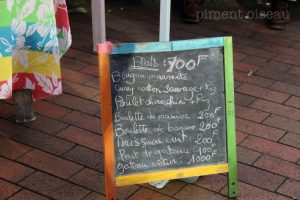 piment oiseau
Plats: 700F
Bougna marmite
Curry cochon Sauvage + Riz
Poulet + Riz
Boulette de manioc 200F
Boulette de banane 200F
200F
Part de gateau : 100F
Gateau entier : 1000F